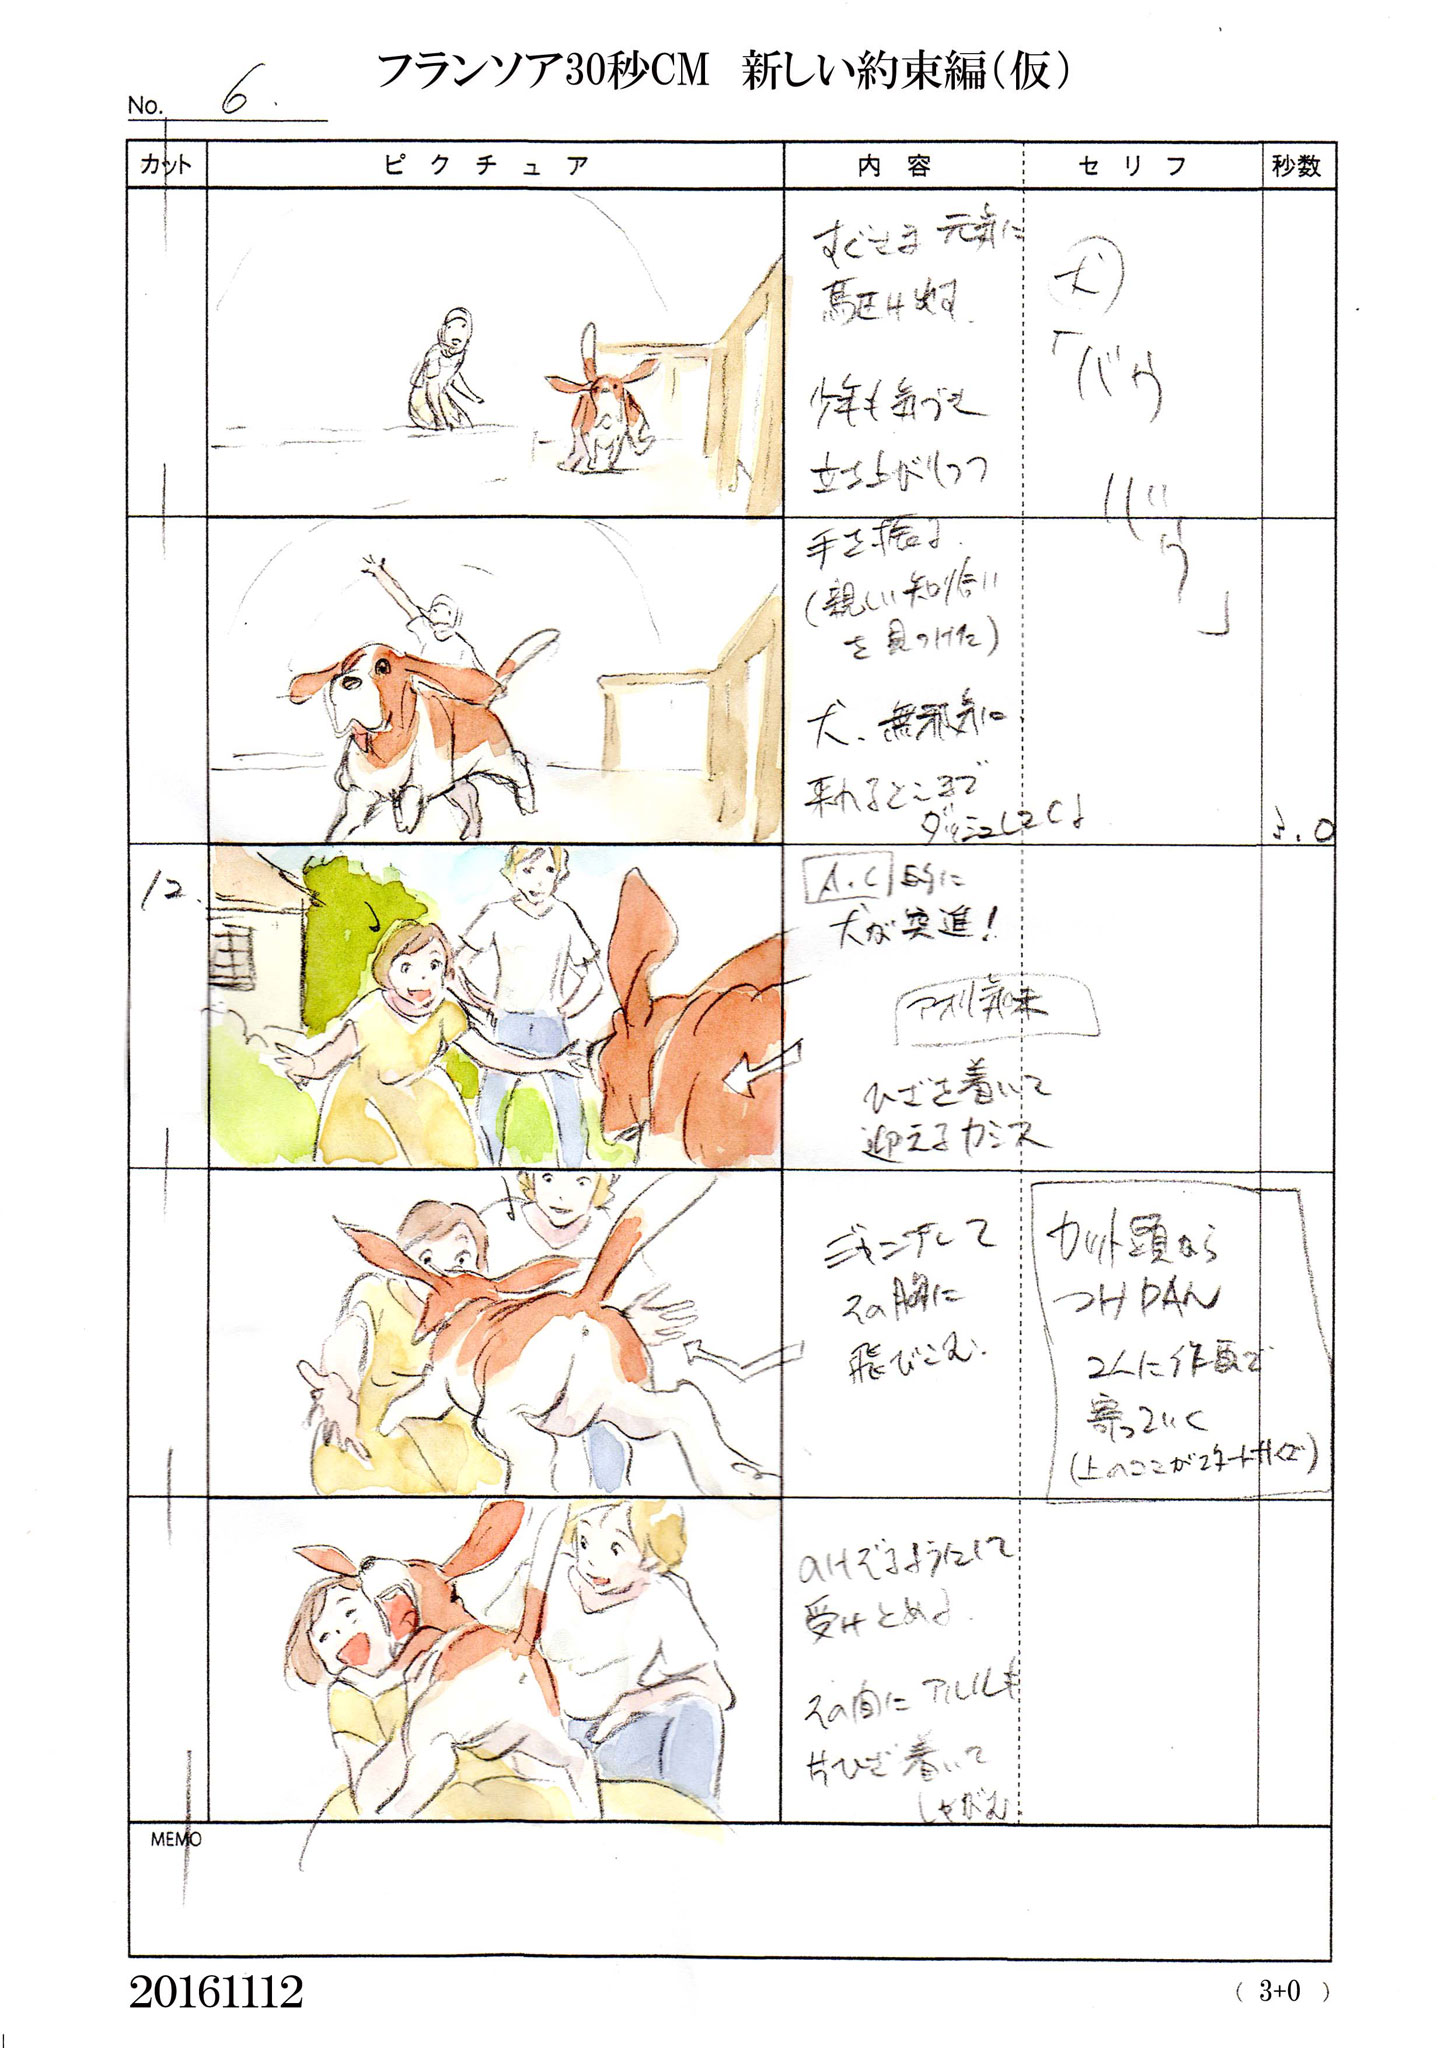 フランソア30秒CM 新しい約束編（仮）
No. 6.
カット
ピクチュア
内容
セリフ
秒数
すぐさま 元気に
駆け出す.
少年も気づき
立ち上がりつつ
犬
「バウ
バウ」
手を振る.
(親しい知り合い
を見つけた)
犬、無邪気に
来れるところまで
12.
犬が突進!
アオリ気味
ひざを着いて
迎えるカミス
ジャンプして
その胸に
飛びこむ.
カット頭から
つけPAN
2人に作画で
寄っていく
(上のコマがスタートサイズ)
のけぞるようにして
受けとめる.
その間に アルルも
片ひざ着いて
しゃがむ
MEMO
20161112
（ 3+0 ）